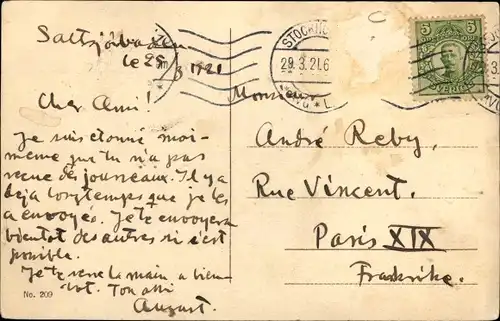 Saltsjöbaden
le 28/3 1921
Cher Ami!
Je suis étonné moi-
même que tu n'a pas
recue des journeaux. Il y a
deja longtemps que je les
a envoyés. Je te enverrai
bientot des autres si c'est
possible.
Je te serre la main a bien-
tot. Ton ami
August.
No. 209
STOCKHOLM
29.3.21.6
5 5
SVERIGE
Monsieur
André Reby,
Rue Vincent.
Paris XIX
Frankrike.